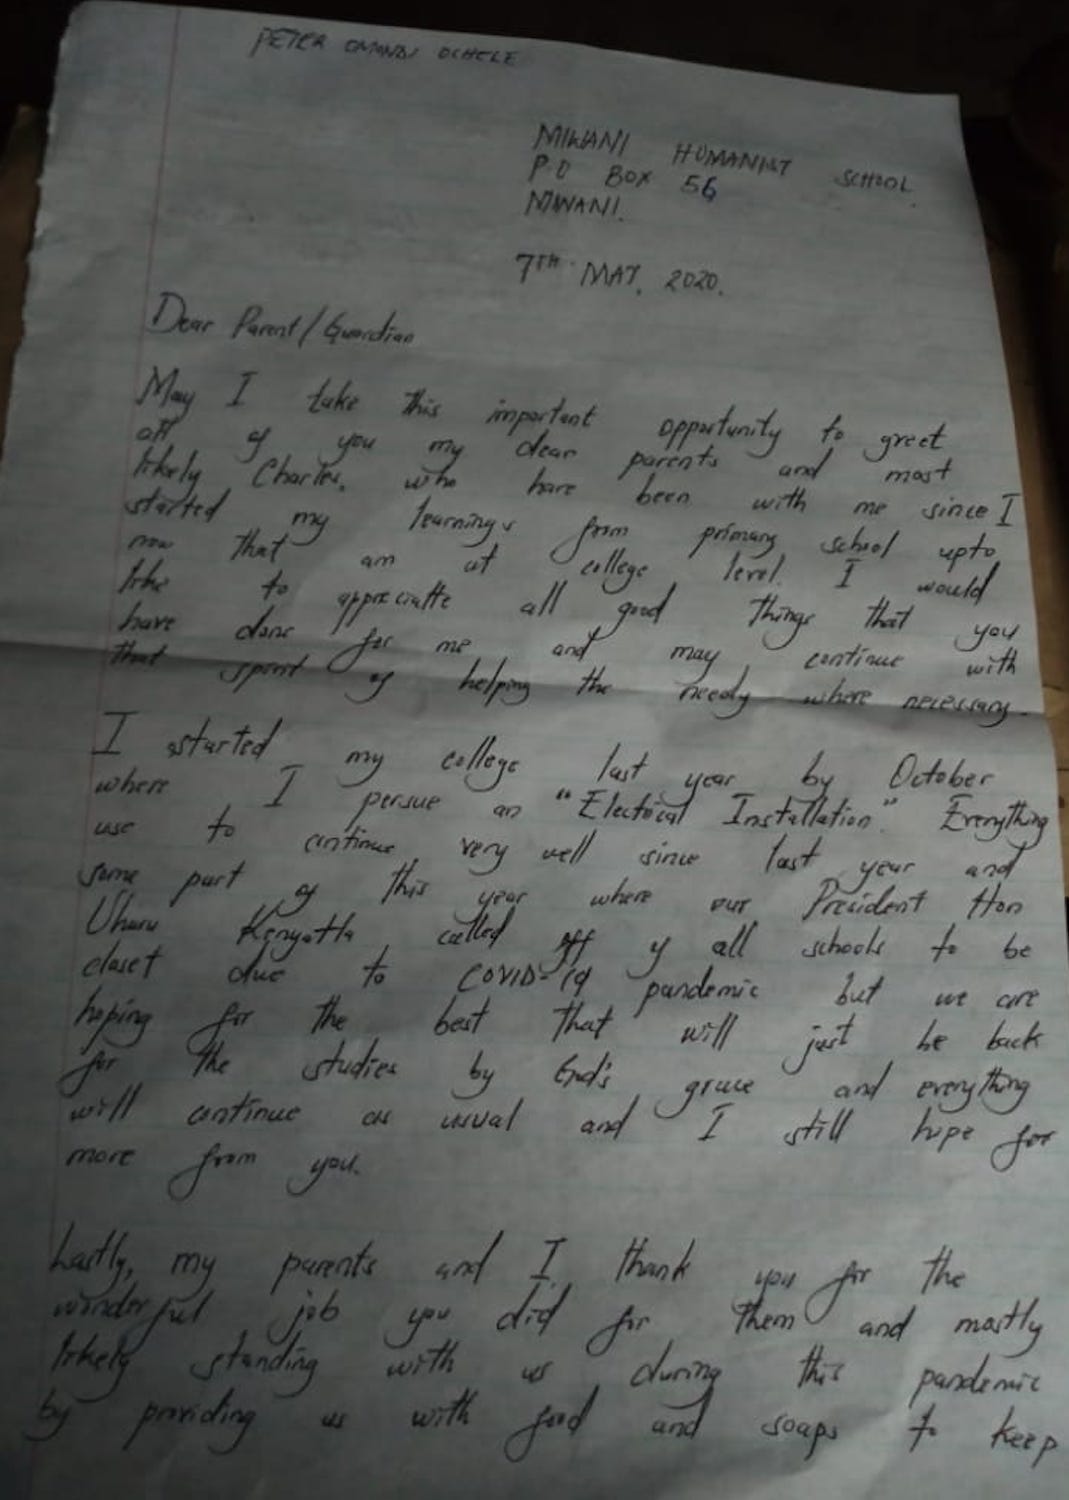 PETER OMONDI OCHELE
MIWANI HUMANIST SCHOOL
P.O BOX 56
MIWANI.
7TH. MAY, 2020.
Dear Parent/Guardian
May I take this important opportunity to greet
all of you my dear parents and most
likely Charles, who have been with me since I
started my learnings from primary school upto
now that am at college level. I would
like to appreciatte all good things that you
have done for me and may continue with
that spirit of helping the needy where necessary.
I started my college last year by October
where I persue an "Electrical Installation". Everything
use to continue very well since last year and
some part of this year where our President Hon
Uhuru Kenyatta called off of all schools to be
closet due to COVID-19 pandemic but we are
hoping for the best that will just be back
for the studies by God's grace and everything
will continue as usual and I still hope for
more from you.
Lastly, my parents and I, thank you for the
wonderful job you did for them and mostly
likely standing with us during this pandemic
by providing us with food and soaps to keep